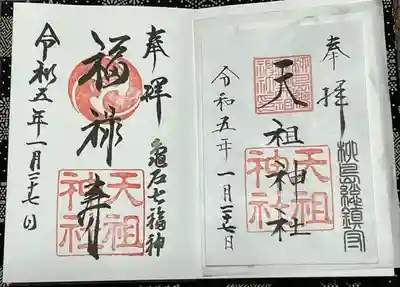 奉拝
柳島總鎮守
天祖神社
天祖神社
令和五年一月二十七日
奉拝
亀戸七福神
福禄寿
天祖神社
令和五年一月二十七日